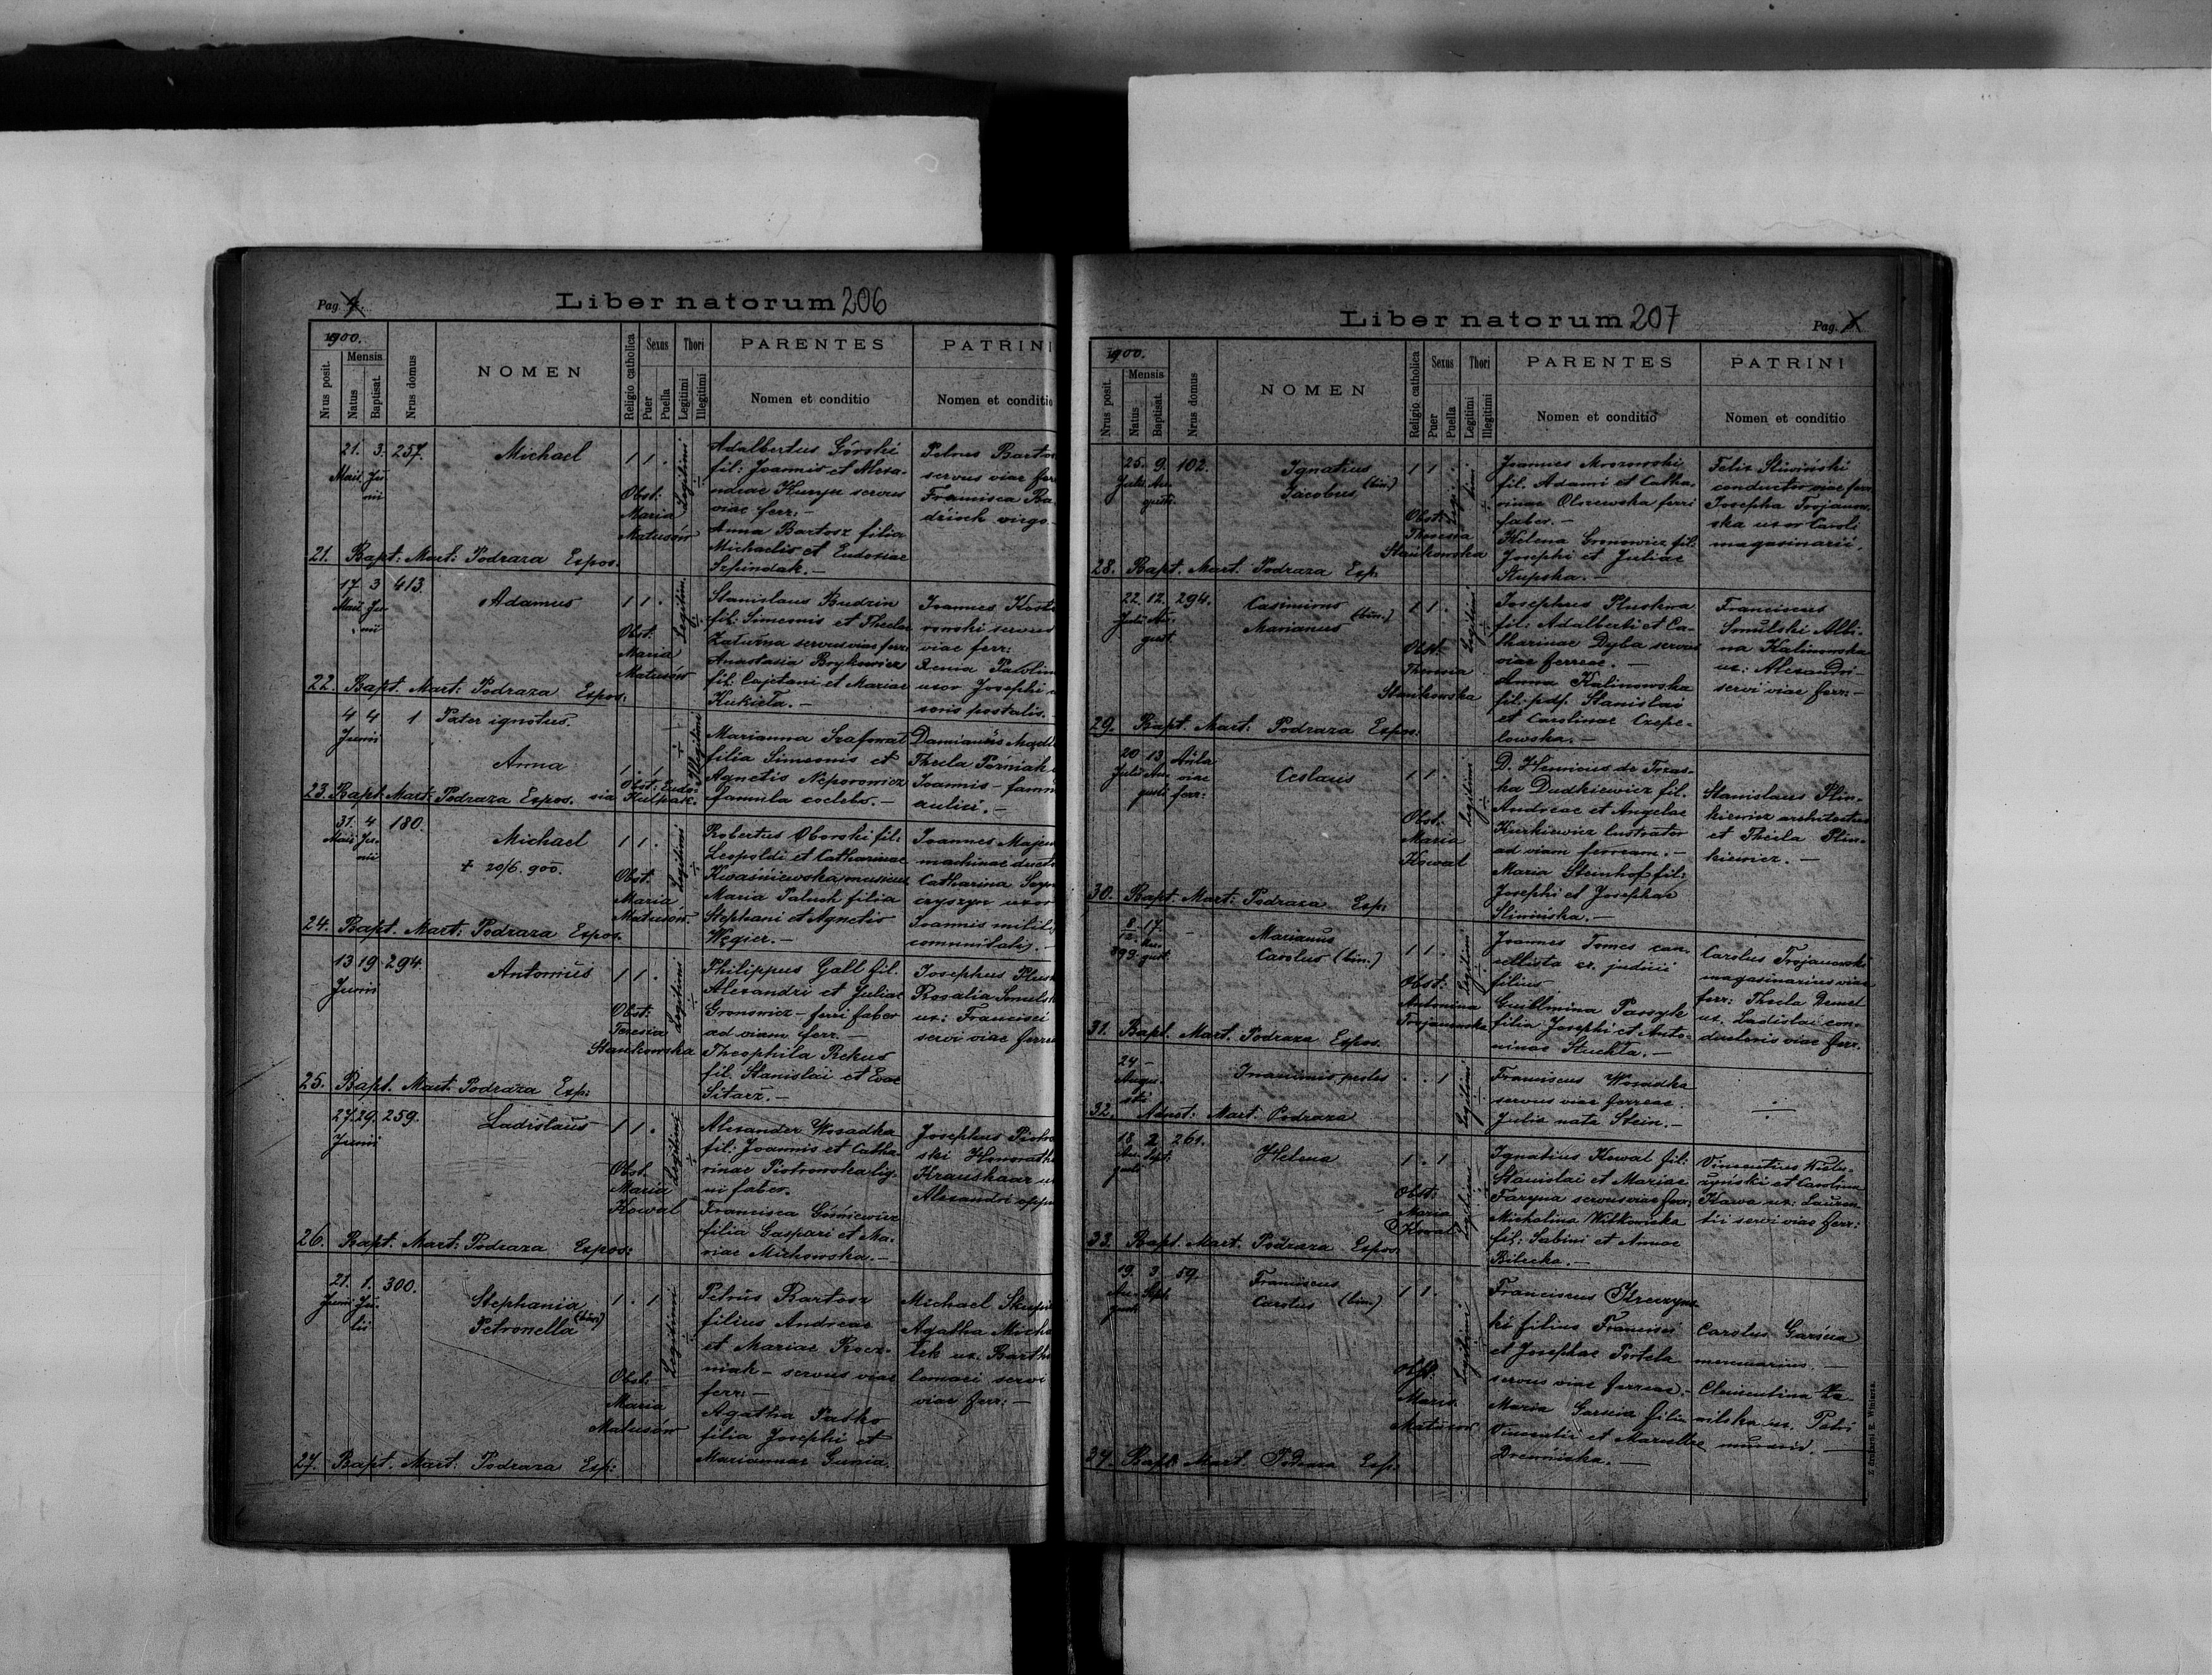 Pag. 4.
Liber natorum 206
1900.
Nrus posit.
Mensis
Natus
Baptisat.
Nrus domus
NOMEN
Religio catholica
Sexus
Puer
Puella
Thori
Legitimi
Illegitimi
PARENTES
Nomen et conditio
PATRINI
Nomen et conditio
21. 3. 257.
Maii Ju-
nii
Michael
1 1 .
Obst:
Maria
Matusów
Legitimi
Adalbertus Górski
fil: Joannis et Alexa-
ndrae servus
viae ferr: -
Anna Bartosz filia
Michaelis et Eudosiae
Szpindak. -
Petrus Barto
servus viae fer
Francisca Ba
virgo. -
21. Bapt: Mart: Podraza Expos.
17. 3 413.
Maii Ju-
nii
Adamus
1 1 .
Obst:
Maria
Matusów
Legitimi
Stanislaus Budzin
fil: Simeonis et Theclae
servus viae ferr:
Anastasia Brykowicz
fil: Cajetani et Mariae
Kukiela. -
Joannes Kost
ronski servus
viae ferr:
uxor Josephi
soris postalis. -
22. Bapt. Mart: Podraza Expos:
4 4 1
Junii
Pater ignotus.
Anna
1 . 1
Obst: Eudo-
xia Kulpak.
Illegitimi
Marianna Szafowat
filia Simeonis et
Agnetis Neporowicz
famula coelebs. -
Damianus
Thecla Poźniak
Joannis - fam
aulici. -
23. Bapt: Mart: Podraza Expos.
31. 4 180.
Maii Ju-
nii
Michael
+ 20/6. 900.
1 1 .
Obst:
Maria
Matusów.
Legitimi
Robertus Oborski fil:
Leopoldi et Catharinae
Kwaśniewska musicus
Maria Paluch filia
Stephani et Agnetis
Węgier. -
Joannes
machinae duct
Catharina
uxor
Joannis milit
communitatis. -
24. Bapt. Mart: Podraza Expos.
13 19 294.
Junii
Antonius
1 1 .
Obst:
Teresia
Stankowska
Legitimi
Philippus Gall fil.
Alexandri et Juliae
Gronowicz - ferri faber
ad viam ferr. -
Theophila Rekus
fil. Stanislai et Evae
Sitarz. -
Josephus Plus
Rosalia Smulsk
ux: Francisci
servi viae ferre
25. Bapt. Mart. Podraza Exp:
27. 29. 259.
Junii
Ladislaus
1 1 .
Obst.
Maria
Kowal
Legitimi
Alexander Wosadka
fil: Joannis et Catha-
rinae Piotrowska lig-
ni faber.
Francisca Góśniewicz
filia Gaspari et Ma-
riae Michowska. -
Josephus Piotro
ski Honoratha
Kraushaar u
Alexandri
26. Bapt. Mart: Podraza Expos:
21. 1. 300.
Junii Ju-
lii
Stephania
Petronella (bin.)
1 . 1
Obst:
Maria
Matusów
Legitimi
Petrus Bartosz
filius Andreae
et Mariae
niak - servus viae
ferr: -
Agatha Patko
filia Josephi et
Mariannae Gunia.
Michael
Agatha Micha
lek ux. Barth
lomaei servi
viae ferr: -
27. Bapt. Mart: Podraza Exp:
Liber natorum 207
Pag.
1900.
Nrus posit.
Mensis
Natus
Baptisat.
Nrus domus
NOMEN
Religio catholica
Sexus
Puer
Puella
Thori
Legitimi
Illegitimi
PARENTES
Nomen et conditio
PATRINI
Nomen et conditio
25. 9. 102.
Julii Au-
gusti.
Ignatius
Jacobus (bin.)
1 1 .
Obst:
Theresia
Stankowska
Legitimi
Joannes Mrozowski
fil. Adami et Catha-
rinae Olszewska ferri
faber. -
Helena Gronowicz fil:
Josephi et Juliae
Słupska. -
Felix Śliwiński
conductor viae ferr.
Josepha Trojanow-
ska uxor Caroli
magasinarii.
28. Bapt. Mart. Podraza Exp.
22. 12. 294.
Julii Au-
gust.
Casimirus
Marianus (bin.)
1 1 .
Obst.
Theresia
Stankowska
Legitimi
Josephus Pluskwa
fil: Adalberti et Ca-
tharinae Dyba servus
viae ferreae. -
Anna Kalinowska
fil: Stanislai
et Carolinae Czepe-
lowska. -
Franciscus
Smulski Albi-
na Kalinowska
ux: Alexandri
servi viae ferr: -
29. Bapt. Mart: Podraza Expos:
20 13
Julii Au-
gusti
viae
ferr:
Ceslaus
1 1 .
Obst:
Maria
Kowal
Legitimi
D. Henricus de Tras-
ka Dudkiewicz fil.
Andreae et Angelae
Kurkiewicz lustrator
ad viam ferream. -
Maria Steinhof fil:
Josephi et Josephae
Sliwińska. -
Stanislaus Plin-
kiewicz architectus
et Thecla Plin-
kiewicz. -
30. Bapt. Mart: Podraza Exp:
8/12 17.
899. Au-
gust.
Marianus
Carolus (bin.)
1 1 .
Obst:
Antonina
Trojanowska
Legitimi
Joannes Tomes can-
cellista cs. judicii
filius
Guillmina Passyk
filia Josephi et Anto-
ninae Stuchla. -
Carolus Trojanowski
magasinarius viae
ferr: Thecla Demel
ux. Ladislai con-
ductoris viae ferr.
31. Bapt. Mart. Podraza Expos.
24 -
Augu-
sti
. . 1
Legitimi
Franciscus Wosadka
servus viae ferreae.
Julia nata Stein. -
32. Mart. Podraza
18 2 261.
Au- Sept.
gusti
Helena
1 . 1
Obst:
Maria
Kowal
Legitimi
Ignatius Kowal fil:
Stanislai et Mariae
Faryna servus viae ferr:
Michalina Witkowska
fil: Sabini et Annae
Bilecka. -
Vincentius
et Carolina
Kawa ux: Lauren-
tii servi viae ferr:
33. Bapt. Mart. Podraza Expos.
19. 3 59.
Au- Sept.
gusti
Franciscus
Carolus (bin.)
1 1 .
Obst.
Maria
Matusów
Legitimi
Franciscus
ki filius Francisci
et Josephae Portela
servus viae ferreae. -
Maria Garscia filia
Vincentii et Marcellae
Drewińska. -
Carolus Garscia
mercenarius. -
Clementina
ux. Petri
34. Bapt. Mart. Podraza Exp.
Z drukarni E. Winiarza.